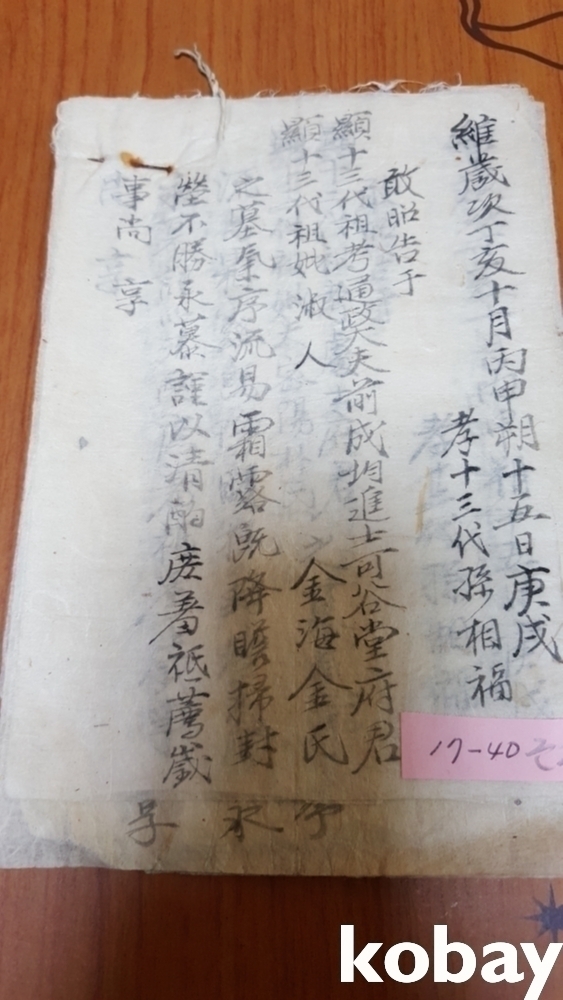 維歲次丁亥十月丙申朔十五日庚戌
孝十三代孫相福
敢昭告于
顯十三代祖考通政大夫前成均進士可谷堂府君
顯十三代祖妣淑人 金海金氏
之墓氣序流易霜露旣降瞻掃封
塋不勝永慕謹以淸酌庶羞祗薦歲
事尚 享
17-40
kobay